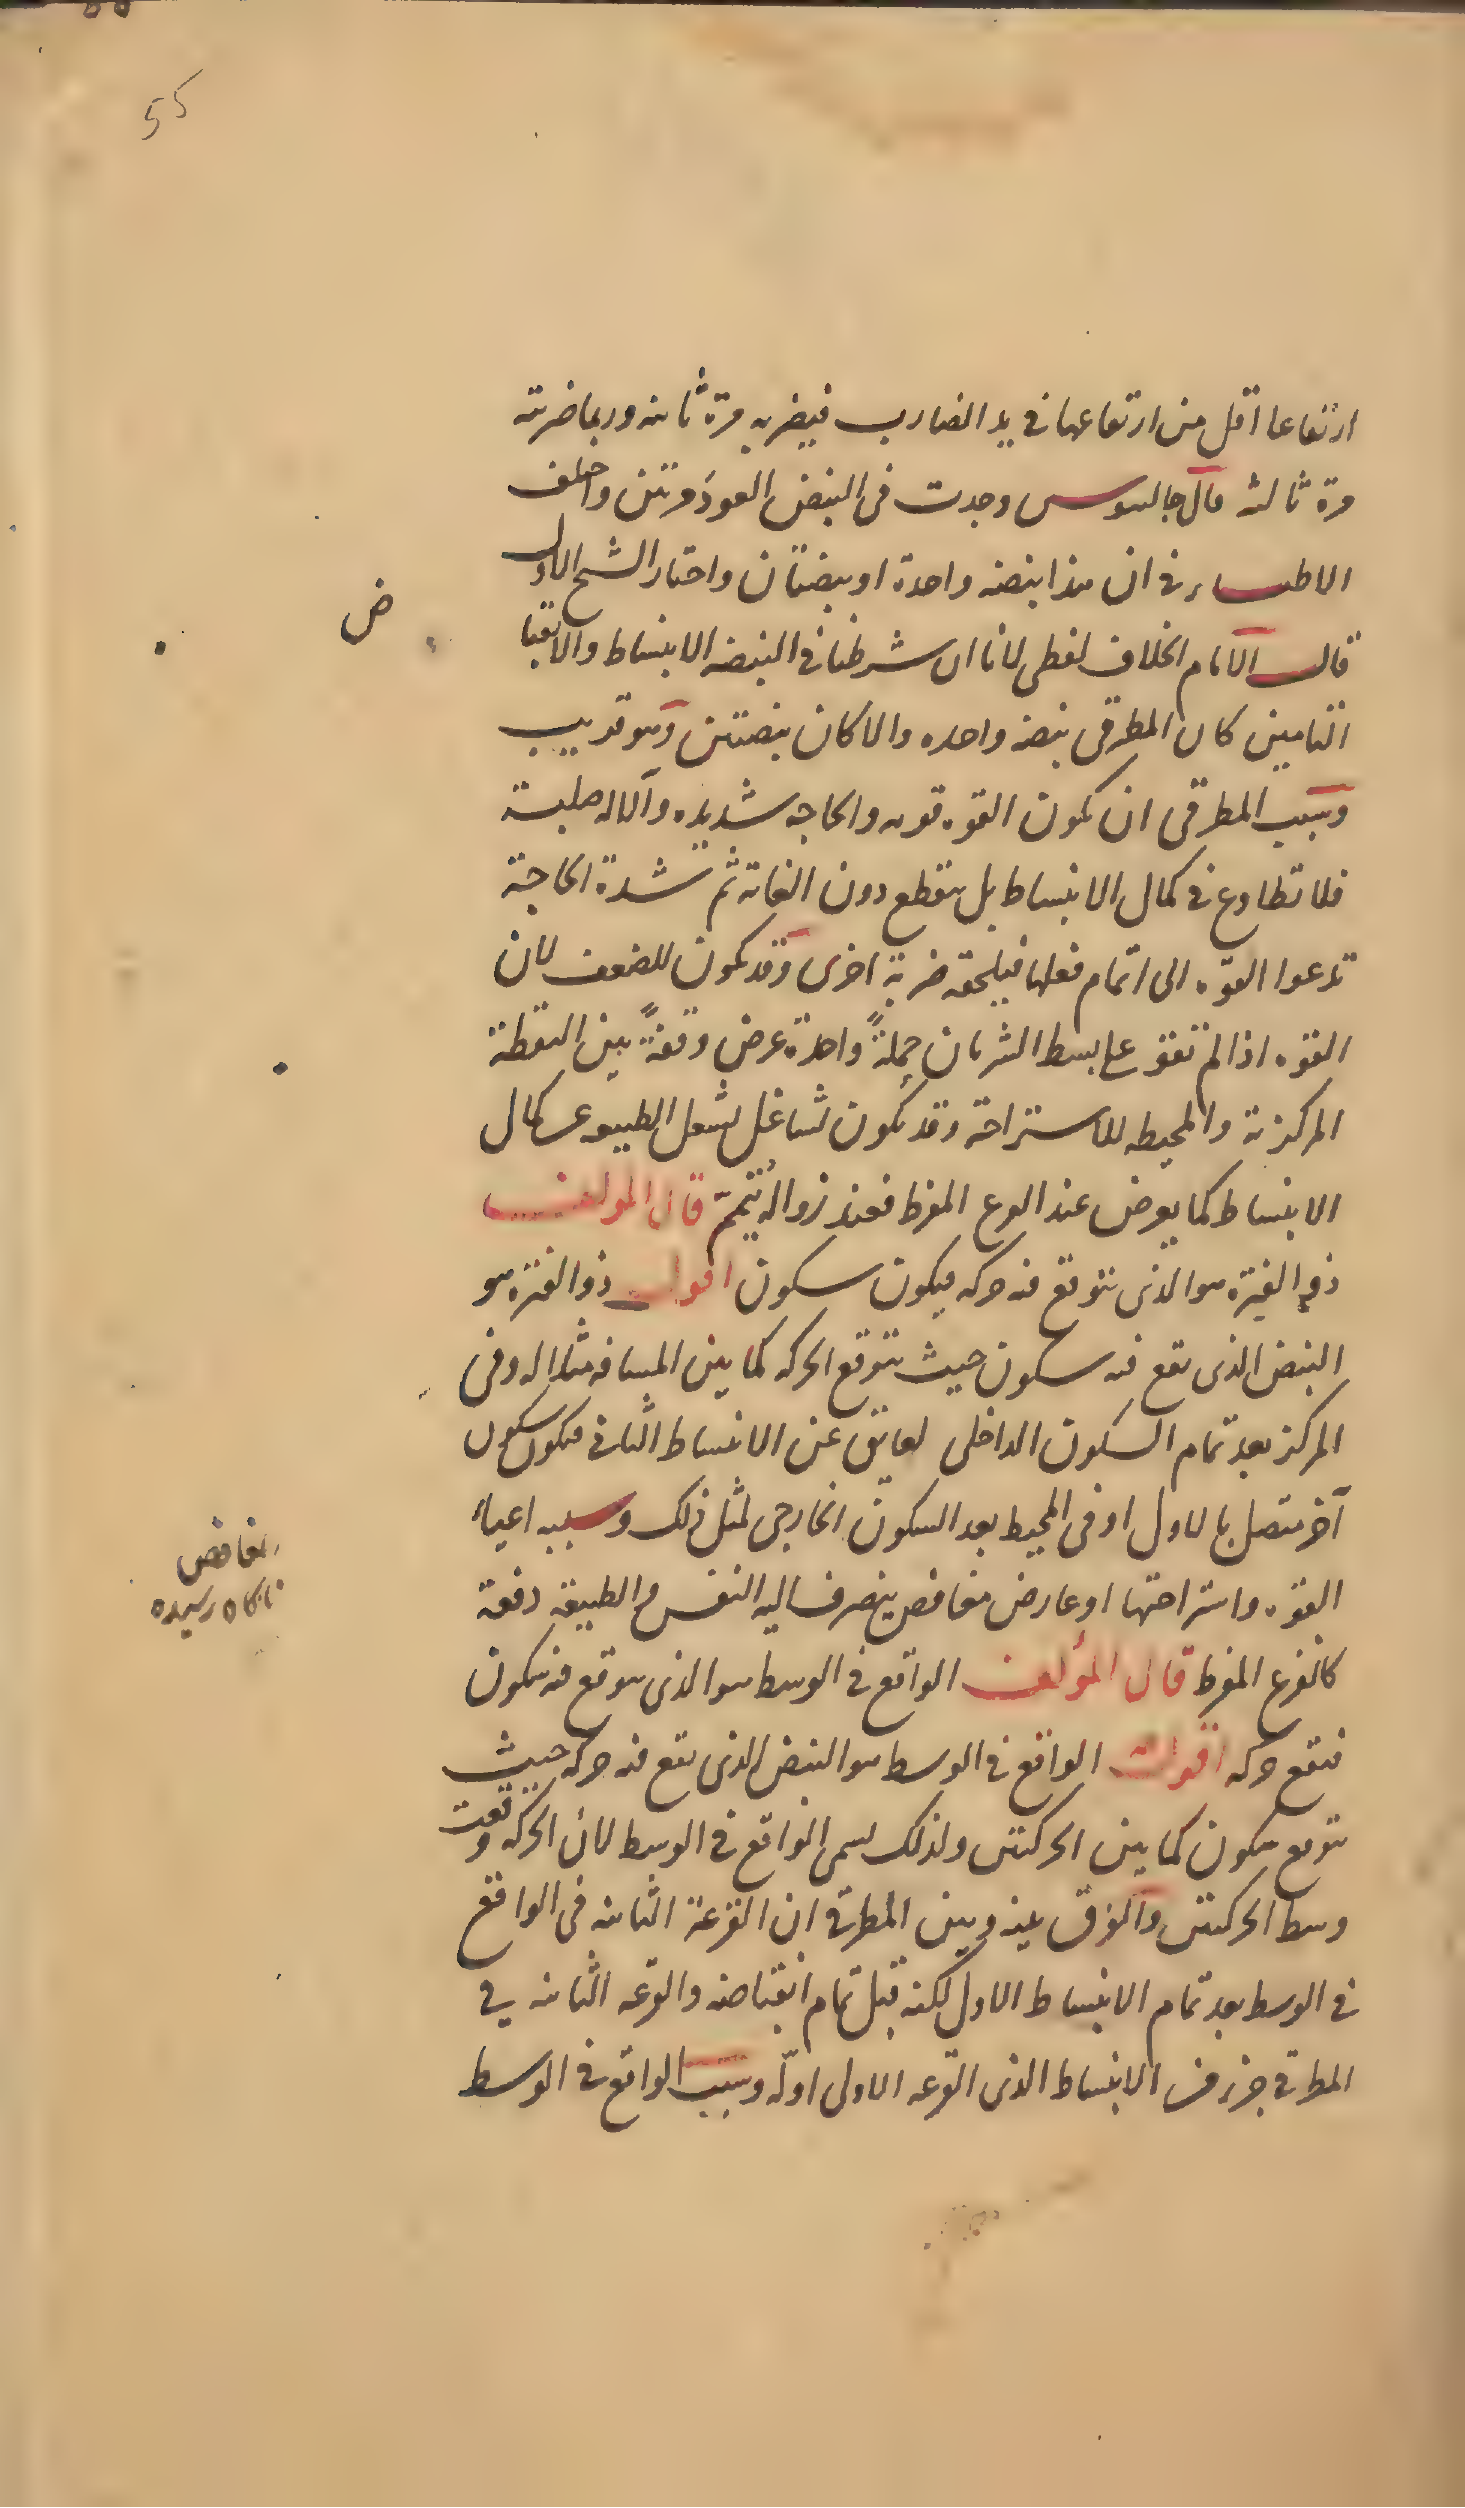 55
ارتفاعا اقل من ارتفاعها فى يد الضارب فيضربه مرة ثانية وربما ضربته
مرة ثالثة قال جالينوس وجدت فى النبض العود مرتين واختلف
الاطباء فى ان هذا نبضة واحدة او نبضتان واختار الشيخ الاول
قال الامام الخلاف لفظى لانا ان شرطنا فى النبضة الانبساط والانقبا
ض
التامين كان المطرقى نبضة واحدة والا كان نبضتين وهو قريب
وسبب المطرقى ان يكون القوة قوية والحاجة شديدة والالة صلبة
فلا تطاوع فى كمال الانبساط بل ينقطع دون الغاية ثم شدة الحاجة
تدعوا القوة الى اتمام فعلها فيلحقه ضربة اخرى وقد يكون للضعف لان
القوة اذا لم تقو على بسط الشريان جملةً واحدة عرض وقفةً بين النقطة
المركزية والمحيطه للاستراحة وقد يكون لشاغل يشغل الطبيعة عن كمال
الانبساط كما يعرض عند الوجع المفرط فعند زواله يُتممّ قال المولف
ذو الفترة هو الذى يتوقع فيه حركة فيكون سكون اقول ذو الفترة هو
النبض الذى يقع فيه سكون حيث يتوقع الحركة كما بين المسافة مثلا او فى
المركز بعد تمام السكون الداخلى لعايق عن الانبساط الثانى فيكون سكون
آخر متصل بالاول او فى المحيط بعد السكون الخارجى لمثل ذلك وسببه اعياء
القوة واستراحتها او عارض مغافص ينصرف اليه النفس والطبيعة دفعة
مغافص
ناكاه رسيده
كالفزع المفرط قال المؤلف الواقع فى الوسط هو الذى يتوقع فيه سكون
فيقع حركة اقول الواقع فى الوسط هو النبض الذى يقع فيه حركة حيث
يتوقع سكون كما بين الحركتين ولذلك يسمى الواقع فى الوسط لان الحركة وقعت
وسط الحركتين والفرق بينه وبين المطرقى ان القرعة الثانية فى الواقع
فى الوسط بعد تمام الانبساط الاول لكنه قبل تمام انقباضه والقرعة الثانية فى
المطرقى جزء من الانبساط الذى القرعة الاولى اوله وسبب الواقع فى الوسط